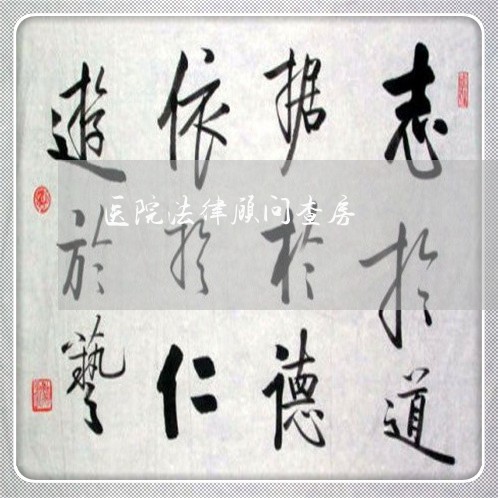 志於道
据於德
依於仁
遊於藝
医院法律顾问查房